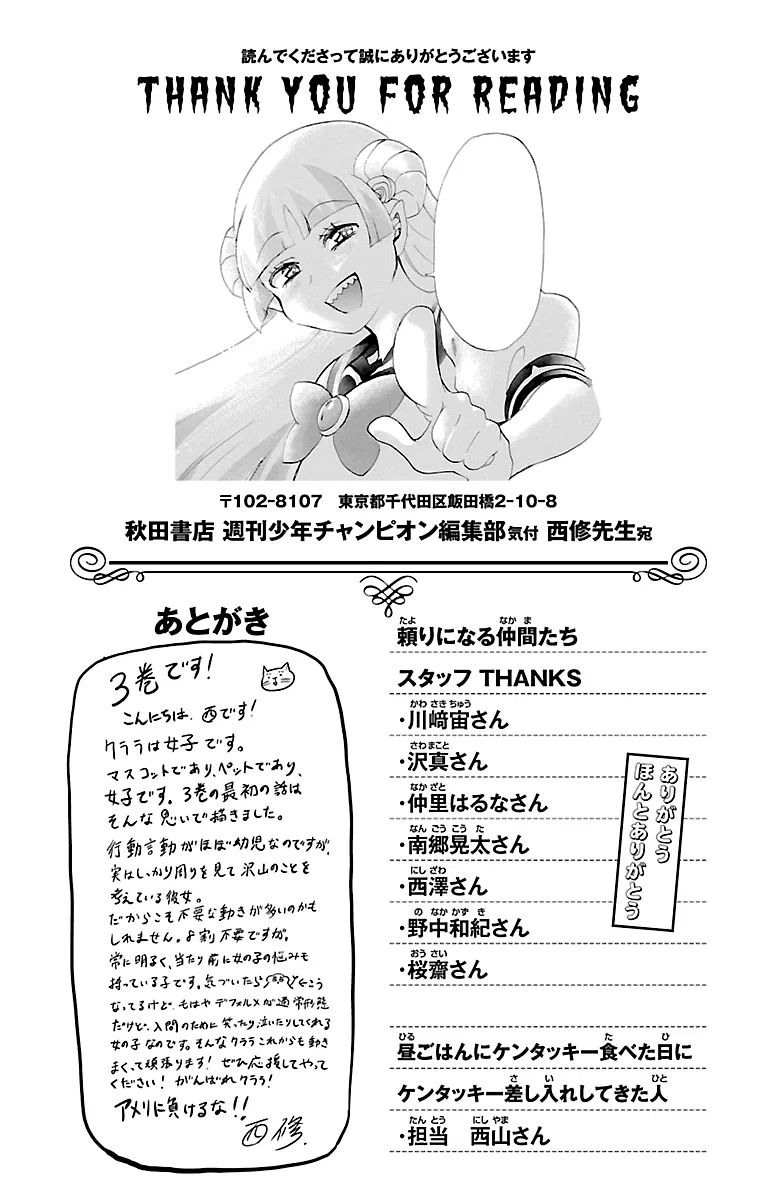 読んでくださって誠にありがとうございます
THANK YOU FOR READING
〒102-8107　東京都千代田区飯田橋2-10-8
秋田書店 週刊少年チャンピオン編集部気付 西修先生宛
あとがき
3巻です!
こんにちは、西です!
クララは女子です。
マスコットであり、ペットであり、
女子です。3巻の最初の話は
そんな思いで描きました。
行動言動がほぼ幼児なのですが、
実はしっかり周りを見て沢山のことを
考えている彼女。
だからこそ不要な動きが多いのかも
しれません。8割不要ですが。
常に明るく、当たり前に女の子の悩みも
持っている子です。気づいたら こう
なってるけど、もはやデフォルメが通常形態
だけど、入間のために笑ったり泣いたりしてくれる
女の子なのです。そんなクララこれからも動き
まくって頑張ります! ぜひ応援してやって
ください! がんばれクララ!
アメリに負けるな!!
西修.
頼りになる仲間たち
たよ なかま
スタッフ THANKS
・川﨑宙さん
かわさきちゅう
・沢真さん
さわまこと
・仲里はるなさん
なかざと
・南郷晃太さん
なんごうこうた
・西澤さん
にしざわ
・野中和紀さん
のなかかずき
・桜齋さん
おうさい
ありがとう
ほんとありがとう
昼ごはんにケンタッキー食べた日に
ひる た ひ
ケンタッキー差し入れしてきた人
さ い ひと
・担当　西山さん
たんとう にしやま